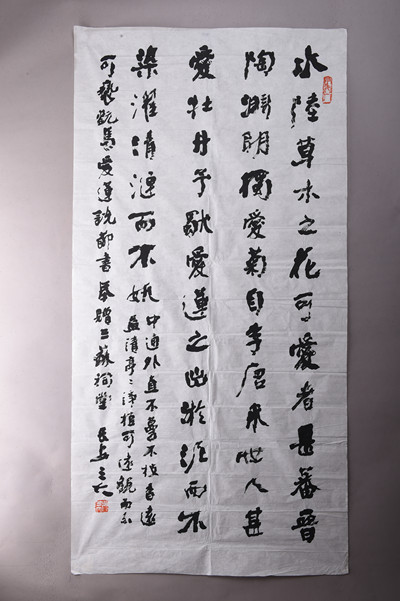 水陸草木之花可愛者甚蕃晉
陶淵明獨愛菊自李唐來世人甚
愛牡丹予獨愛蓮之出淤泥而不
染濯清漣而不妖中通外直不蔓不枝香遠
益清亭々淨植可遠觀而不
可褻玩焉愛蓮說節書奉贈三蘇祠堂長安